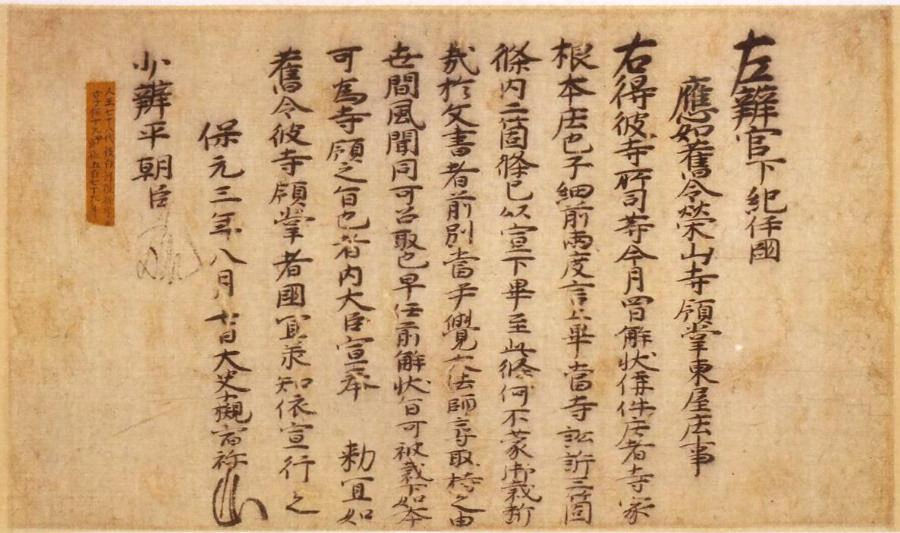 左辨官下紀伊國
應如舊令榮山寺領掌東屋庄事
右得彼寺所司等今月四日解状偁件庄者寺家
根本庄也子細前両度言上畢當寺訟訴三箇
條内二箇條已以宣下畢至此條何不蒙御裁断
哉於文書者前別當子覺大法師尋取持之由
世間風聞同可召取也早任前解状旨可被裁下如本
可為寺領之旨也者内大臣宣奉 勅宜如
舊令彼寺領掌者國宜承知依宣行之
保元三年八月七日大史小槻宿祢
少辨平朝臣
人王七十八代